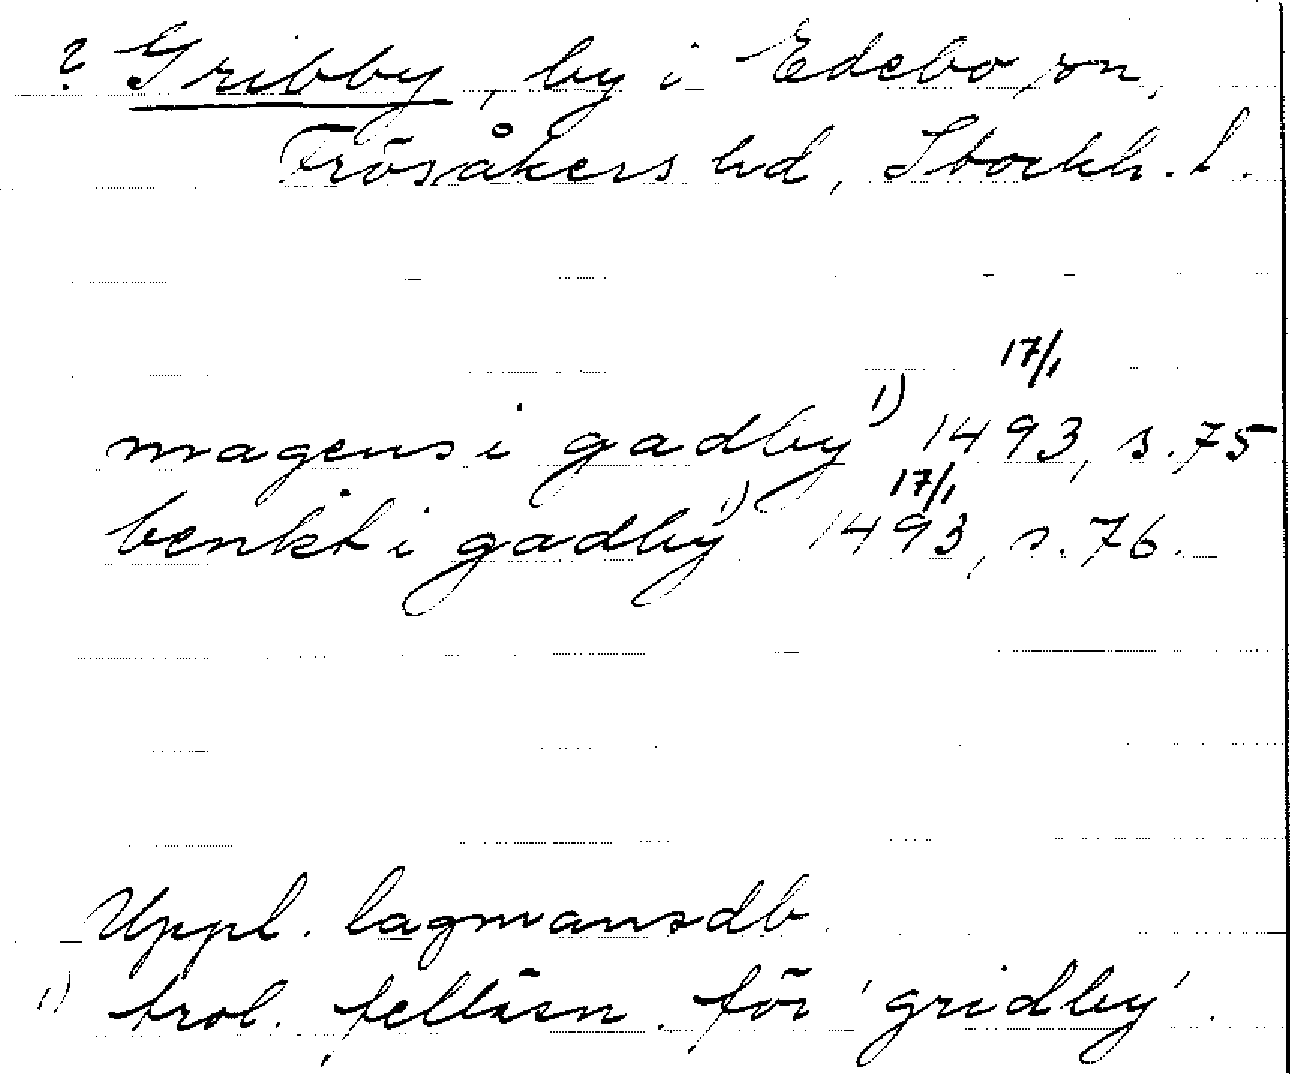 ? Gribby, by i Edebo sn,
Frösåkers hd, Stockh. l.
17/1
magens i gadby 1) 1493, s. 75
17/1
benkt i gadby 1) 1493, s. 76.
Uppl. lagmansdb
1) trol. felläsn. för 'gridby'.